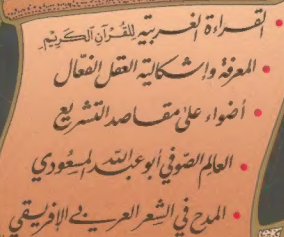 القراءة الغربية للقرآن الكريم
المعرفة وإشكالية العقل الفعّال
أضواء على مقاصد التشريع
العالم الصّوفي أبو عبد اللّه المسعُودي
المدح في الشعر العربي الإفريقي